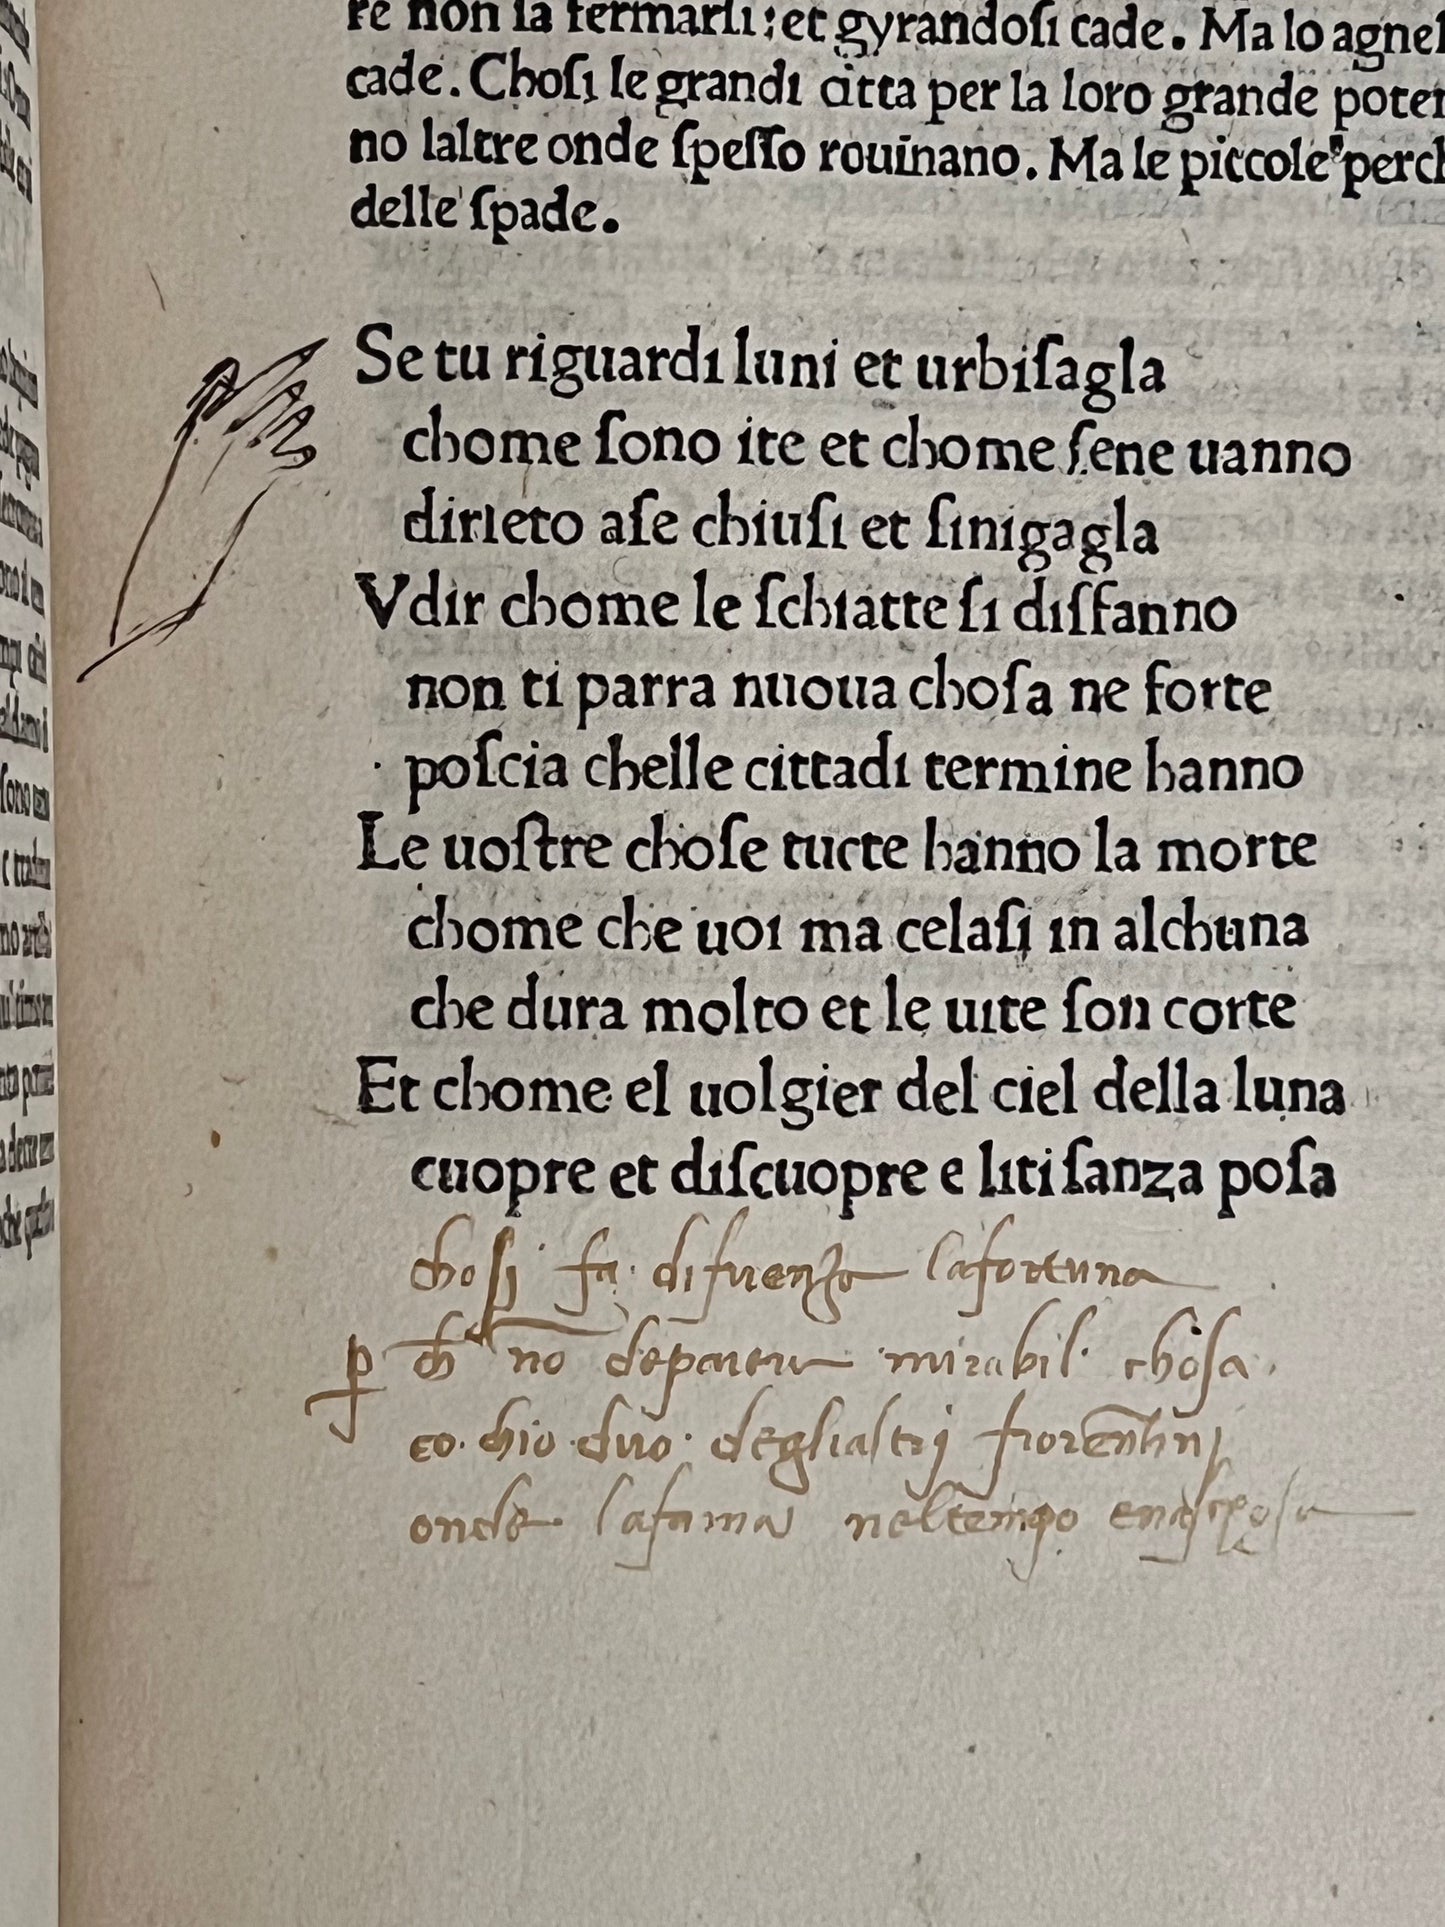 re non sa fermarsi: et gyrandosi cade. Ma lo agnel
cade. Chosi le grandi citta per la loro grande poten
no laltre onde speſſo rouinano. Ma le piccole perch
delle ſpade.
Se tu riguardi luni et urbiſagla
chome ſono ite et chome ſene uanno
dirieto aſe chiuſi et ſinigagla
Vdir chome le ſchiatte ſi diſfanno
non ti parra nuoua choſa ne forte
poſcia chelle cittadi termine hanno
Le uoſtre choſe tucte hanno la morte
chome che uoi ma celaſi in alchuna
che dura molto et le uite ſon corte
Et chome el uolgier del ciel della luna
cuopre et diſcuopre e liti ſanza poſa
choſi fa difirenze lafortuna
p ch no deparere mirabil choſa.
co chio diro deglialtri fiorentini
onde lafama neltempo enaſcoſa